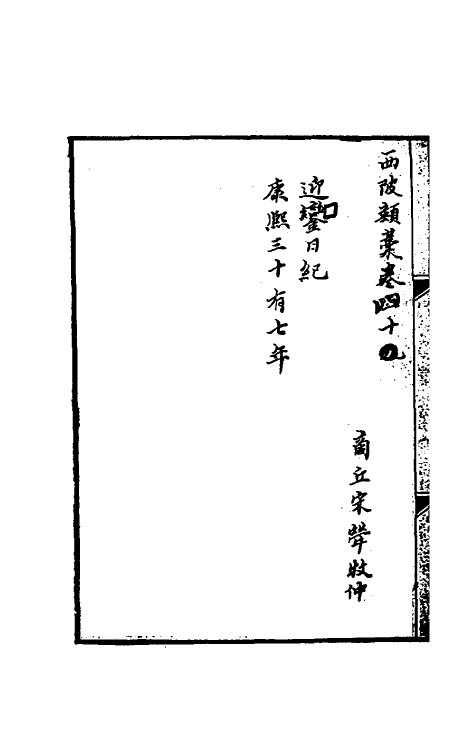 西陂類藁卷四十
商丘宋犖牧仲
迎鑾日紀
康熙三十有七年